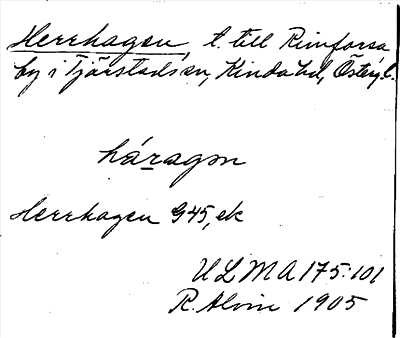 Herrhagen, t. till Rimforsa
by i Tjärstads sn, Kinda hd, Östergl.
háragən
Herrhagen G45, ek
ULMA 175:101
R. Alvin 1905